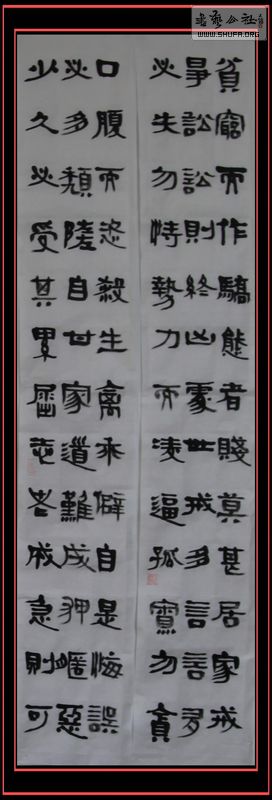 书艺公社
WWW.SHUFA.ORG
貧窮而作驕態者賤莫甚居家戒
爭訟訟則終凶處世戒多言言多
必失勿恃勢力而凌逼孤寡勿貪
口腹而恣殺生禽乖僻自是悔誤
必多頹隳自甘家道難成狎暱惡
少久必受其累屈志老成急則可